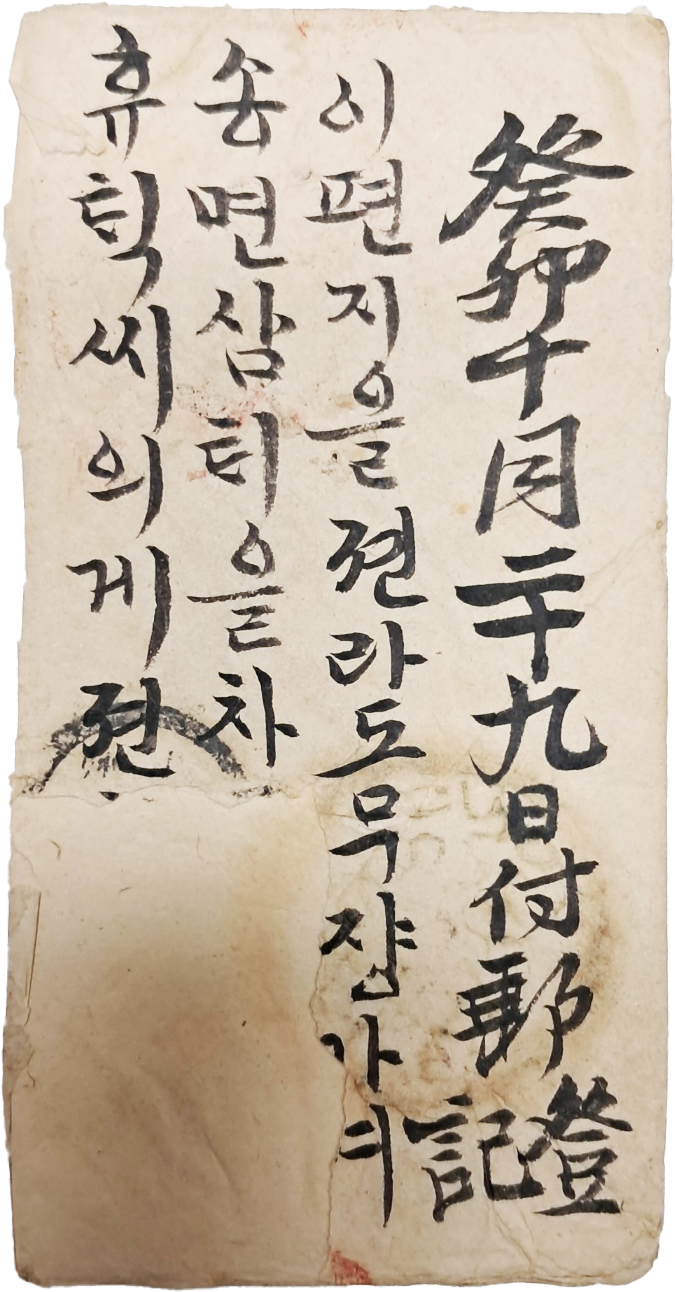 癸卯十月二十九日付郵登記
이편지을젼라도무쟝가
송면삼터을차
휴혁씨의게젼